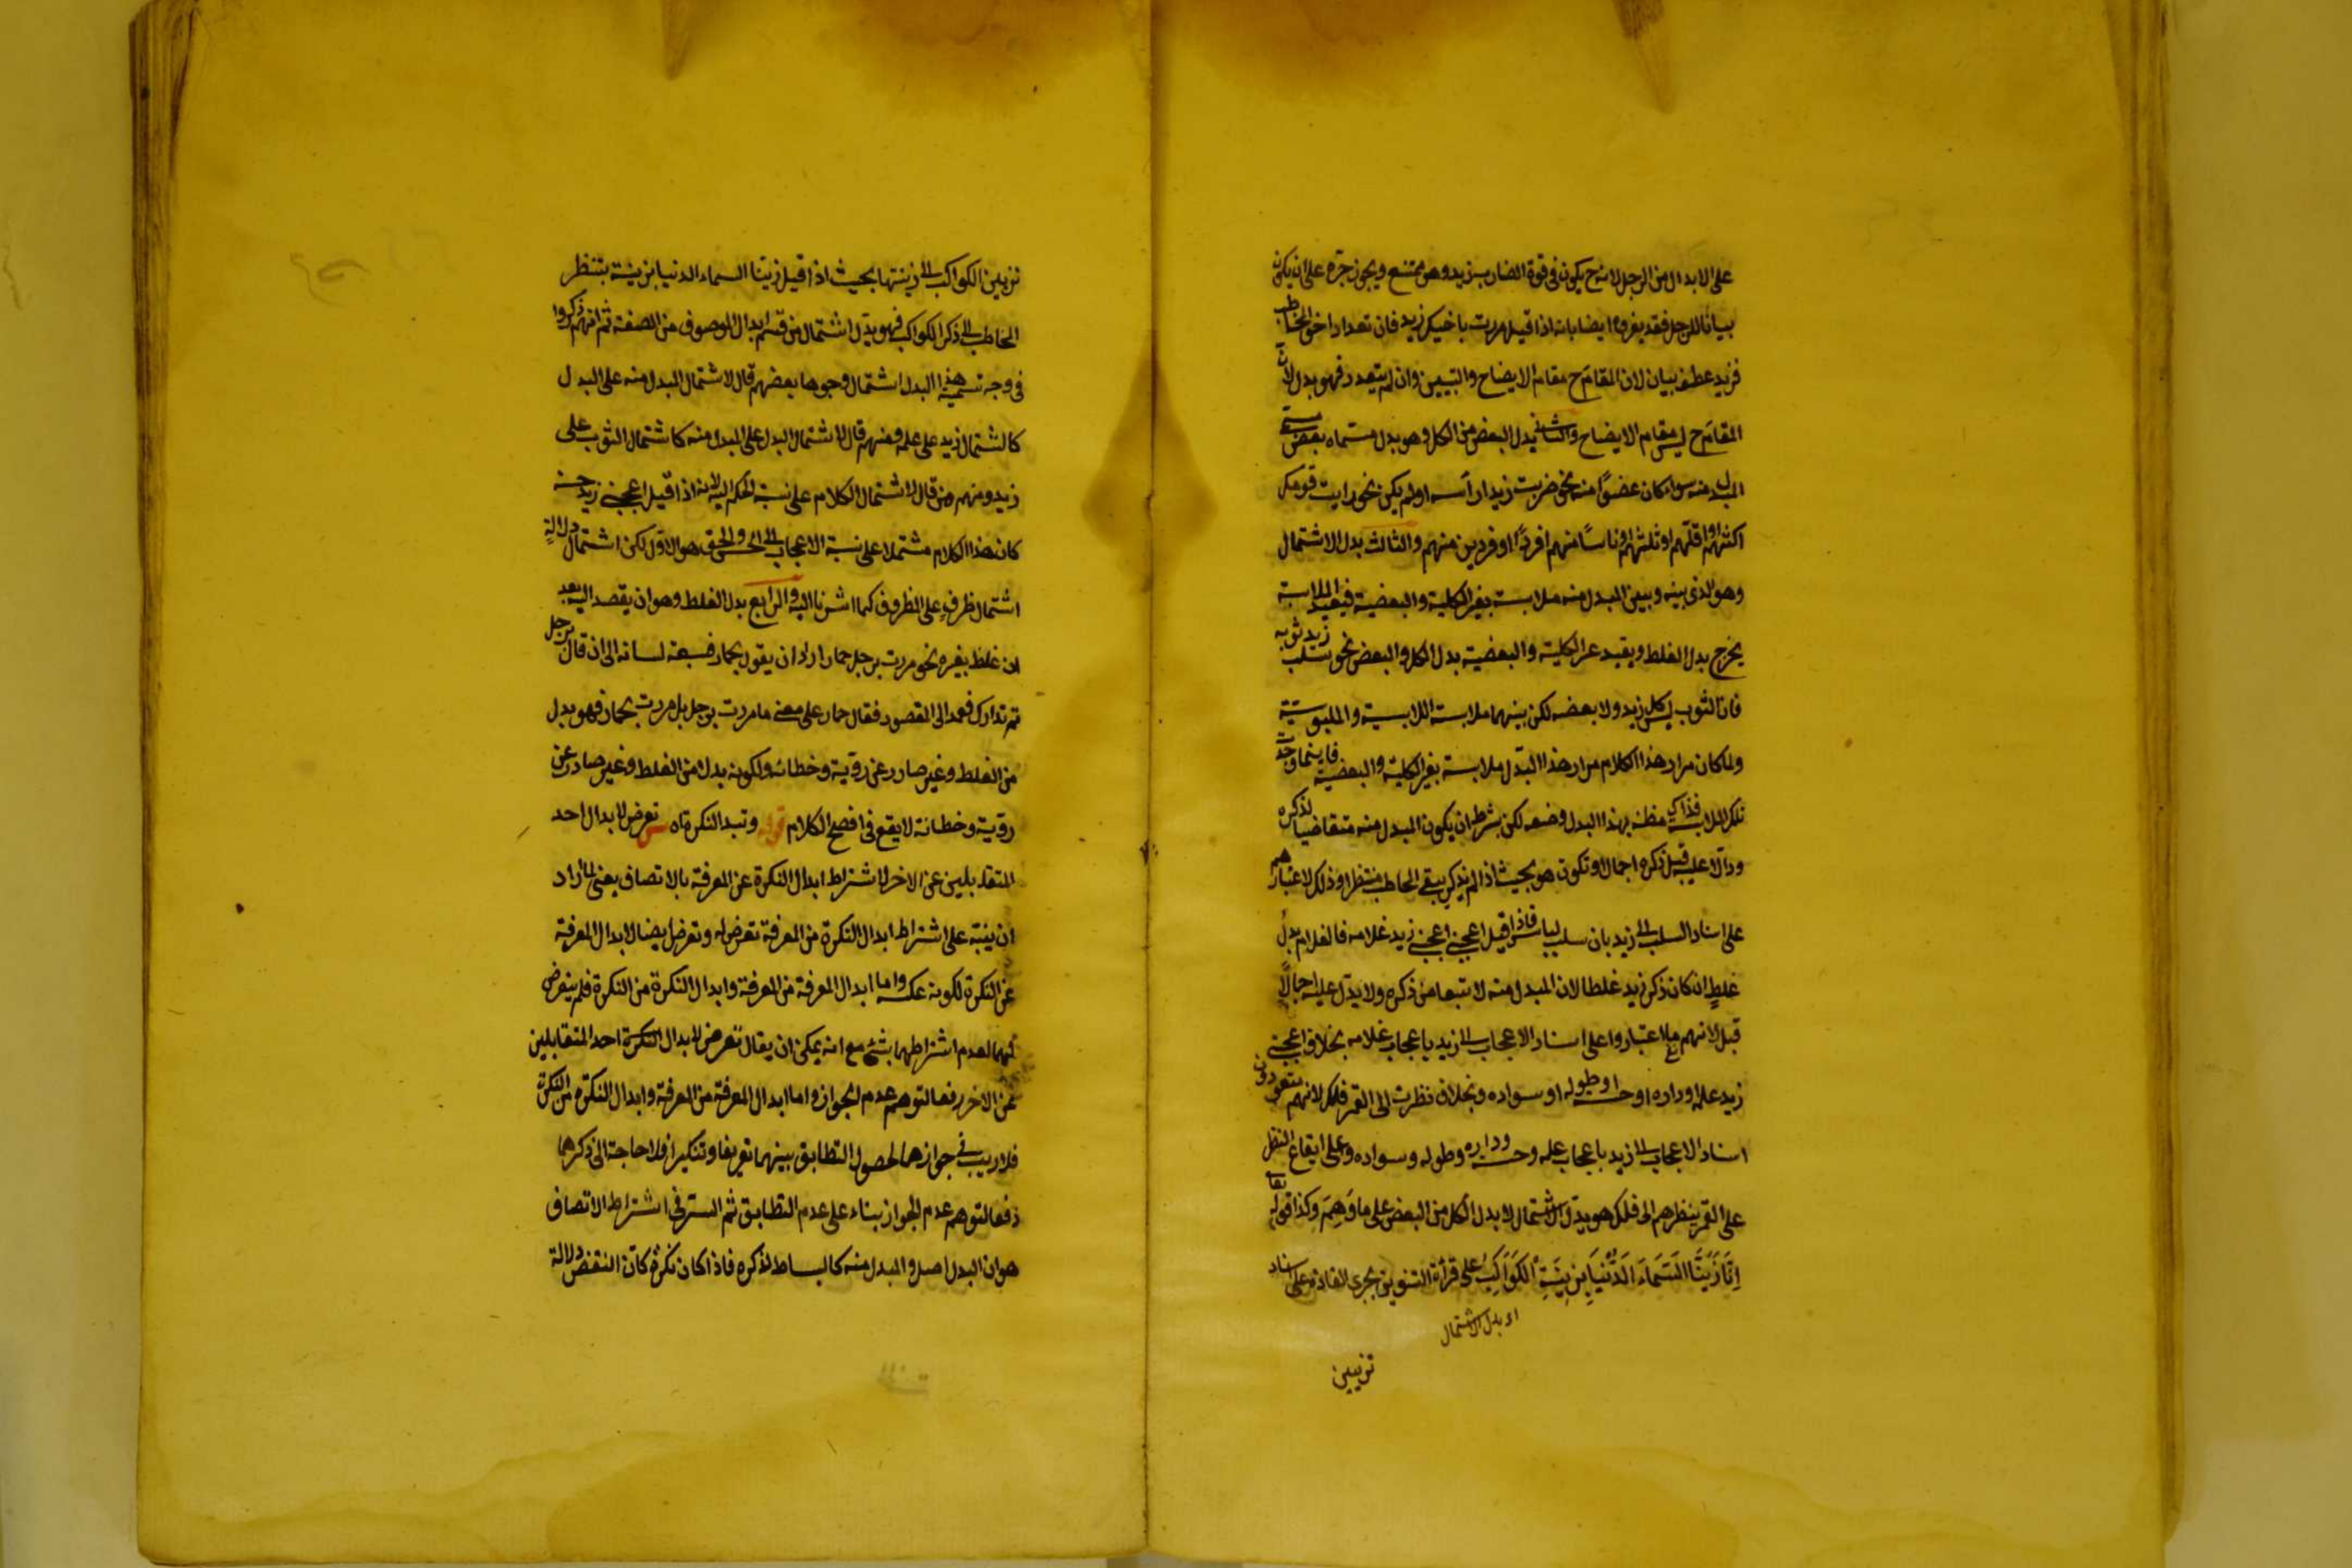 على الابدال من الرجل لانه ح يكون فى قوة الضارب زيد وهو ممتنع ويجوز جره على ان يكون
بيانا للرجل فقد يفرق ايضا بانه اذا قيل مررت باخيك زيد فان تعداد اخو المخاطب
فزيد عطف بيان لان المقام ح مقام الايضاح والتبيين وان لم يتعدد فهو بدل لان
المقام ح ليس مقام الايضاح والثانى بدل البعض من الكل وهو بدل مسماه بعض مسمى
المبدل منه سواء كان عضوًا منه نحو ضربت زيدا رأسه او لم يكن نحو رايت قومك
اكثرهم او اقلهم او ثلثهم او ناسًا منهم او فردًا او فردين منهم والثالث بدل الاشتمال
وهو الذى بينه وبين المبدل منه ملابسة بغير الكلية والبعضية فبقيد الملابسة
يخرج بدل الغلط وبقيد غير الكلية والبعضية بدل الكل والبعض نحو سلب زيد ثوبه
فان الثوب ليس كل زيد ولا بعضه لكن بينهما ملابسة اللابسية والملبوسية
ولما كان مراد هذا الكلام مراد هذا البدل ملابسة بغير الكلية والبعضية فاينما وجدت
تلك الملابسة فذاك مظنة بهذا البدل وضعه لكن بشرط ان يكون المبدل منه متقاضيا لذكره
ودالا عليه قبل ذكره اجمالا وتكون هو بحيث اذا لم يذكر يبقى المخاطب منتظرا وذلك لاعتبارهم
على اسناد السلب الى زيد بان سلب لباس فاذا قيل اعجبنى اعجبنى زيد غلامه فالغلام بدل
غلطٍ ان كان ذكر زيد غلطا لان المبدل منه لا تبعا من ذكره ولا يدل عليه اجمالًا
قبل لانهم ما اعتبروا على اسناد الاعجاب الى زيد باعجاب غلامه بخلاف اعجبنى
زيد علمه او داره او حسنه او طوله او سواده وبخلاف نظرت الى القمر فلكه لانهم متعودون
اسناد الاعجاب الى زيد باعجاب علمه وحسنه وداره وطوله وسواده وعلى ايقاع النظر
على القمر بنظرهم الى فلكه هو بدل الاشتمال لا بدل الكل من البعض على ما وَهِمَ وكذا قوله تعالى
اِنَّا زَيَّنَّا السَّمَاءَ الدُّنْيَا بِزِينَةٍ الكَوَاكِبِ على قرأة التنوين بجرى العادة على اسناد
اى بدل الاشتمال
تزيين
تزيين الكواكب الى زينتها بحيث اذا قيل زينا السماء الدنيا بزينة ينتظر
المخاطب الى ذكر الكواكب فهو بدل اشتمال من قسم ابدال الموصوف من الصفة ثم انهم ذكروا
فى وجه تسمية هذا البدل اشتمال وجوها بعضهم قال لاشتمال المبدل منه على البدل
كاشتمال زيد على علمه ومنهم قال لاشتمال البدل على المبدل منه كاشتمال الثوب على
زيد ومنهم من قال لاشتمال الكلام على نسبة الحكم اليه لانه اذا قيل اعجبنى زيد حسنه
كان هذا الكلام مشتملا على نسبة الاعجاب الى الحسن والحق هو الاول لكن اشتمال دلالةٍ
اشتمال ظرفٍ على المظروف كما اشرنا اليه والرابع بدل الغلط وهو ان يقصد اليه بعد
ان غلط بغيره نحو مررت برجل حمار اراد ان يقول بحمار فسبقه لسانه الى ان قال برجل
ثم تدارك فعمد الى المقصود فقال حمار على معنى ما مررت برجل بل مررت بحمار فهو بدل
من الغلط وغير صادر عن روية وخطانه ولكونه بدلا من الغلط وغير صادر عن
روية وخطانة لا يقع فى افصح الكلام قوله وتبدل النكرة اه تعرض لابدال احد
المتقابلين عن الاخر لاشتراط ابدال النكرة عن المعرفة بالاتصاف يعنى لما اراد
ان ينبه على اشتراط ابدال النكرة من المعرفة تعرض له وتعرض ايضا لابدال المعرفة
عن النكرة لكونه عكسه واما ابدال المعرفة من المعرفة وابدال النكرة من النكرة فلم يتعرض
لهما لعدم اشتراطهما بشئ مع انه يمكن ان يقال تعرض لابدال النكرة احد المتقابلين
عن الاخر دفعا لتوهم عدم الجواز واما ابدال المعرفة من المعرفة وابدال النكرة من النكرة
فلا ريب فى جوازهما لحصول التطابق بينهما تعريفا وتنكيرا فلا حاجة الى ذكرهما
دفعا لتوهم عدم الجواز بناء على عدم التطابق ثم السر فى اشتراط الاتصاف
هو ان البدل اصل والمبدل منه كالبساط لذكره فاذا كان نكرة كان انقض دلالة